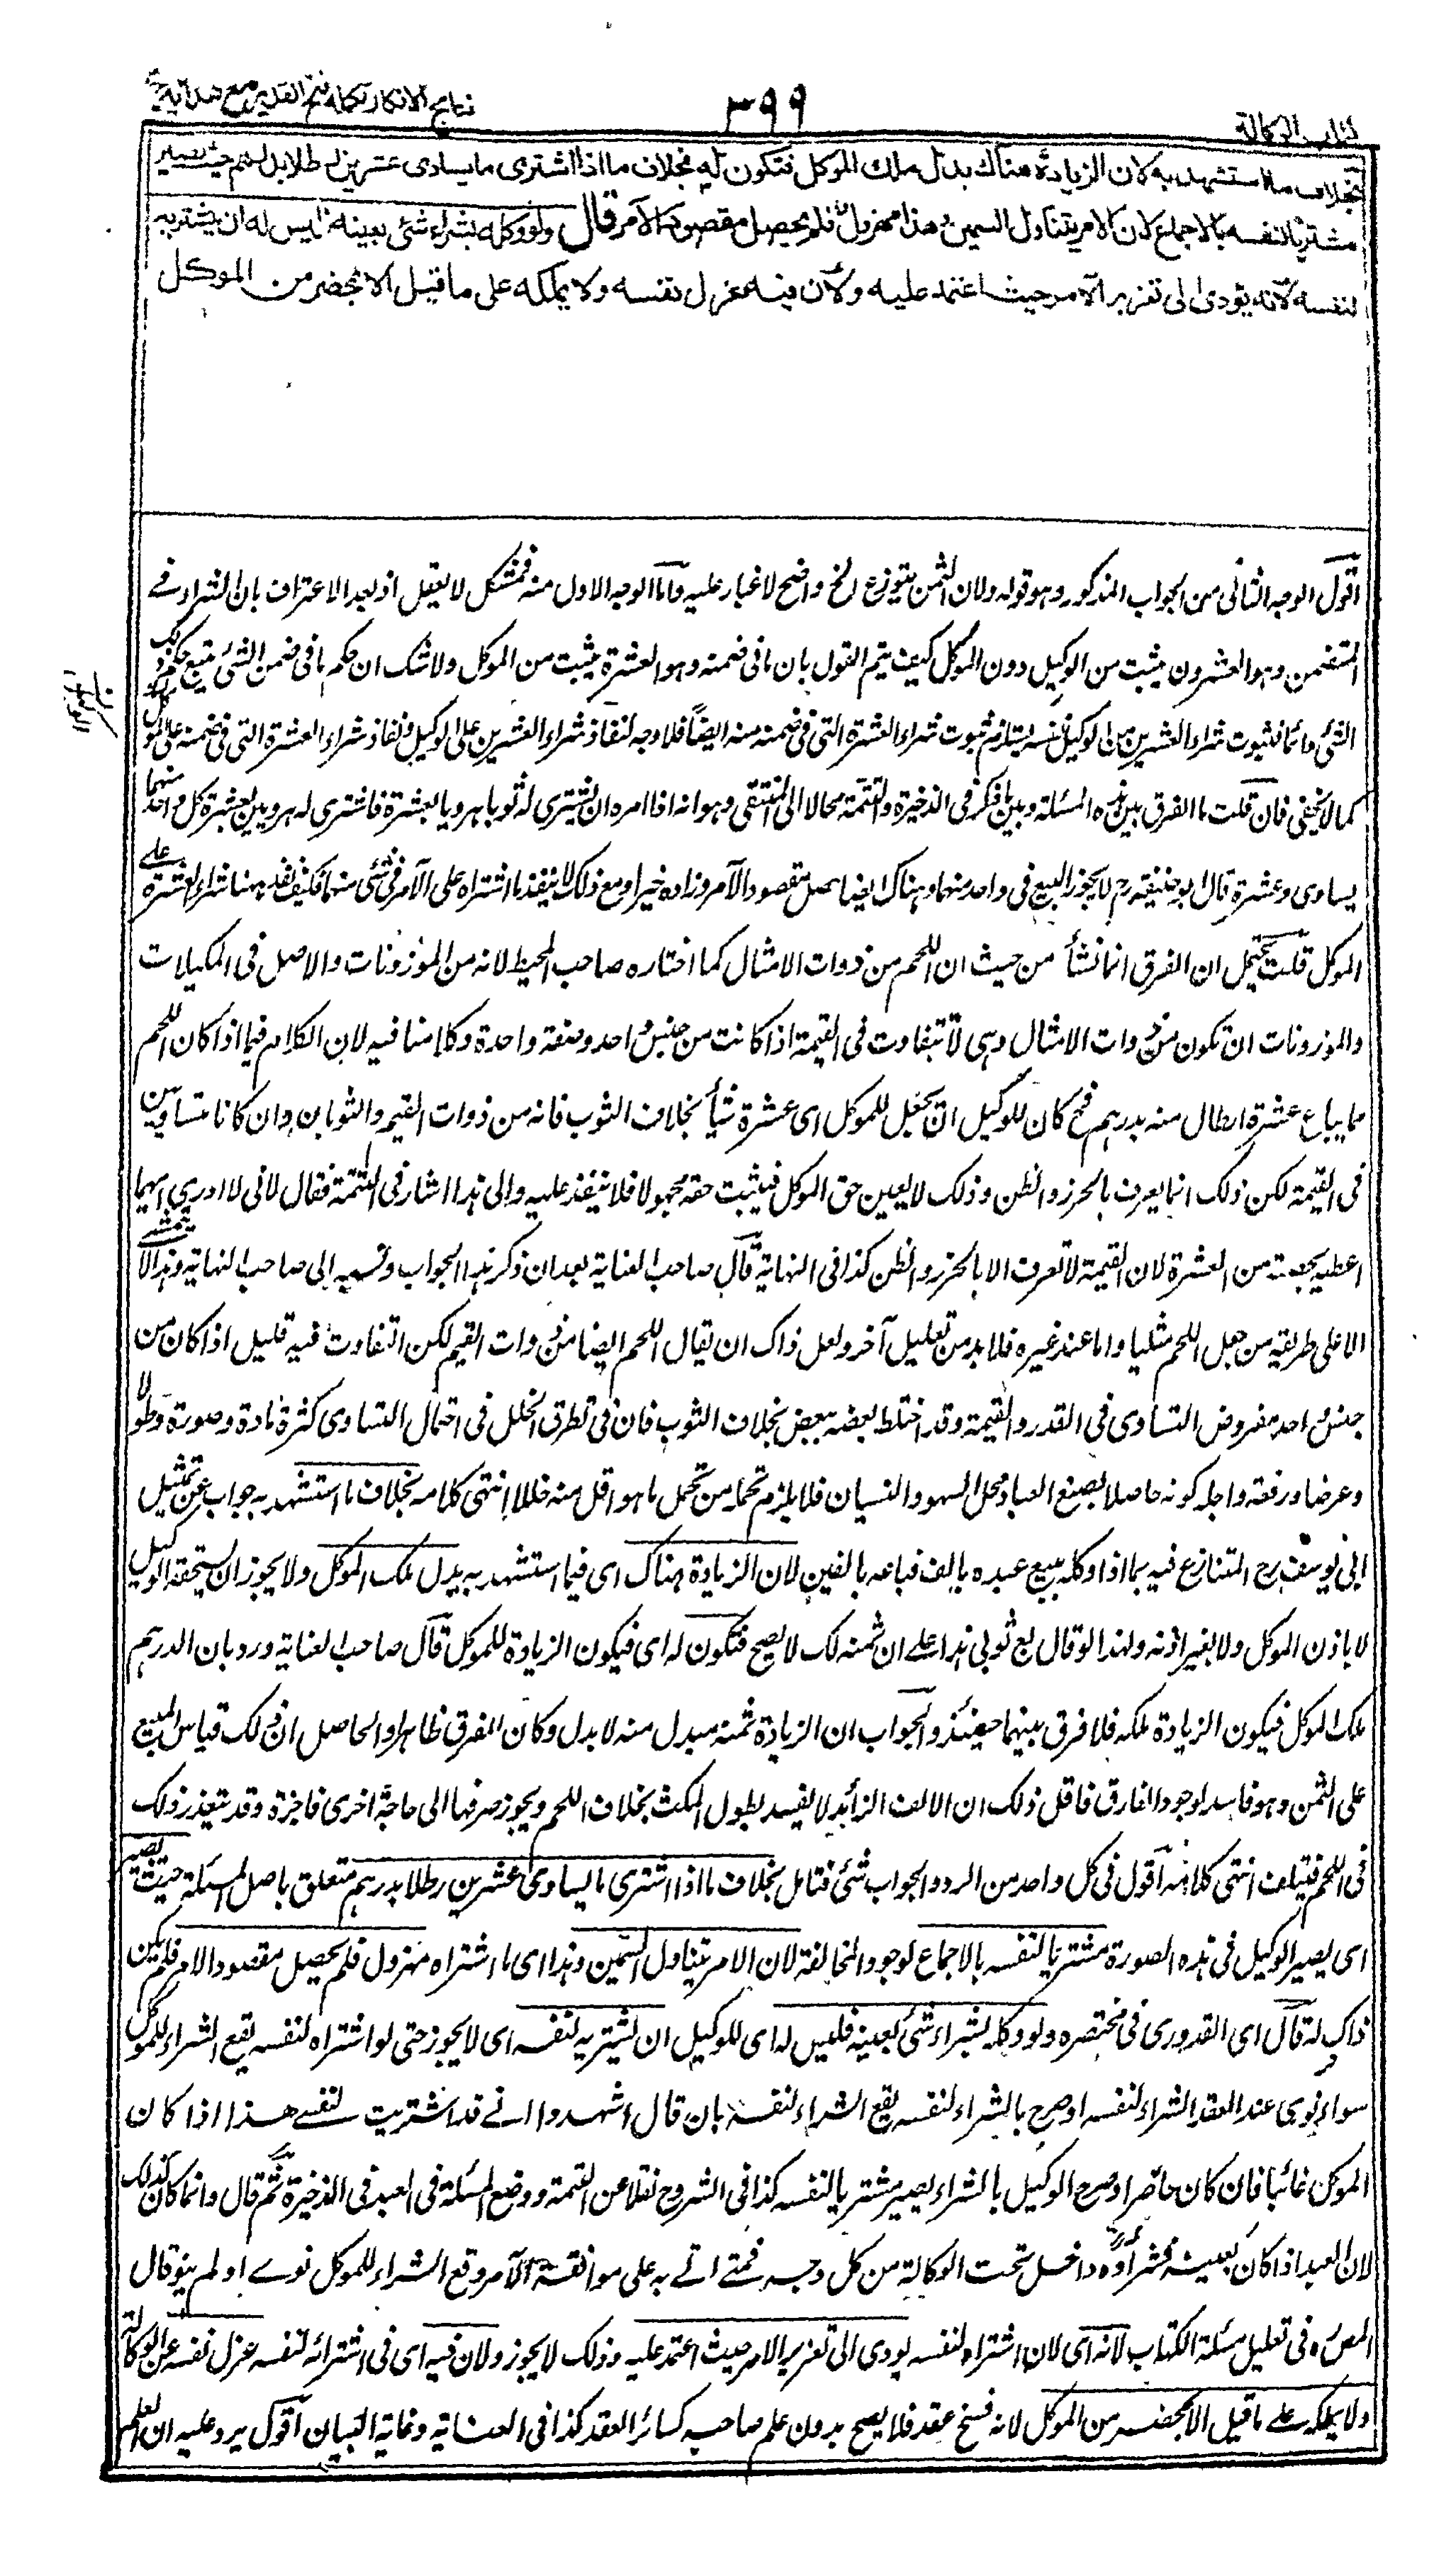 كتاب الوكالة
٣٩٩
نتايج الافكار تكملة فتح القدير مع هداية
بخلاف ما استشهد به لان الزيادة هناك بدل ملك الموكل فتكون له بخلاف ما اذا اشترى ما يساوى عشرين رطلا بدرهم حيث يصير
مشتريا لنفسه بالاجماع لان الامر يتناول السمين وهذا مهزول فلم يحصل مقصود الآمر قال ولو وكله بشراء شئ بعينه فليس له ان يشتريه
لنفسه لانه يؤدى الى تغرير الآمر حيث اعتمد عليه ولان فيه عزل نفسه ولا يملكه على ما قيل الا بمحضر من الموكل
اقول الوجه الثانى من الجواب المذكور وهو قوله ولان الثمن يتوزع الخ واضح لا غبار عليه واما الوجه الاول منه فمشكل لا يعقل اذ بعد الاعتراف بان الشراء فے
المتضمن وهو العشرون يثبت من الوكيل دون الموكل كيف يتم القول بان ما فى ضمنه وهو العشرة يثبت من الموكل ولا شك ان حكم ما فى ضمن الشئ يتبع حكم ذلك
الشئ دائما فثبوت شراء العشرين من الوكيل لنفسه يستلزم ثبوت شراء العشرة التى فى ضمنه منه ايضا فلا وجه لنفاذ شراء العشرين على الوكيل ونفاذ شراء العشرة التى فى ضمنه على الموكل
كما لا يخفى فان قلت ما الفرق بين هذه المسئلة وبين ما ذكر فى الذخيرة والتتمة محالا الى المنتقى وهو انه اذا امره ان يشترى له ثوبا هرويا بعشرة فاشترى له هرويين بعشرة كل واحد منهما
يساوى عشرة قال ابو حنيفة رح لا يجوز البيع فى واحد منهما وهناك ايضا حصل مقصود الآمر وزاده خيرا ومع ذلك لا ينفذ ما اشتراه على الآمر فى شئ منهما فكيف نفذ ههنا شراء العشرة علے
الموكل قلت يحتمل ان الفرق انما نشأ من حيث ان اللحم من ذوات الامثال كما اختاره صاحب المحيط لانه من الموزونات والاصل فى المكيلات
والموزونات ان تكون من ذوات الامثال وهى لا تتفاوت فى القيمة اذا كانت من جنس واحد وصفة واحدة وكلامنا فيه لان الكلام فيما اذا كان اللحم
مما يباع عشرة ارطال منه بدرهم فح كان للوكيل ان يجعل للموكل اى عشرة شيأ بخلاف الثوب فانه من ذوات القيم والثوبان وان كانا متساويين
فى القيمة لكن ذلك انما يعرف بالحزر والظن وذلك لا يعين حق الموكل فيثبت حقه مجهولا فلا ينفذ عليه والى هذا اشار فى التتمة فقال لانى لا ادرى ايهما
اعطيه بحصته من العشرة لان القيمة لا تعرف الا بالحزر والظن كذا فى النهاية قال صاحب العناية بعد ان ذكر هذا الجواب ونسبه الى صاحب النهاية وهذا لا يتمشى
الا على طريقه من جعل اللحم مثليا واما عند غيره فلا بد من تعليل آخر ولعل ذاك ان يقال اللحم ايضا من ذوات القيم لكن التفاوت فيه قليل اذا كان من
جنس واحد مفروض التساوى فى القدر والقيمة وقد اختلط بعضه ببعض بخلاف الثوب فان فى تطرق الخلل فى احتمال التساوى كثرة مادة وصورة وطولا
وعرضا ورفعة واجله كونه حاصلا بصنع العباد محل السهو والنسيان فلا يلزم تحمله من تحمل ما هو اقل منه خللا انتهى كلامه بخلاف ما استشهد به جواب عن تمثيل
ابى يوسف رح المتنازع فيه بما اذا وكله ببيع عبده بالف فباعه بالفين لان الزيادة هناك اى فيما استشهد به بدل ملك الموكل ولا يجوز ان يستحقه الوكيل
لا باذن الموكل ولا بغير اذنه ولهذا لو قال بع ثوبى هذا علے ان ثمنه لك لا يصح فتكون له اى فيكون الزيادة للموكل قال صاحب العناية ورد بان الدرهم
ملك الموكل فيكون الزيادة ملكه فلا فرق بينهما حينئذ والجواب ان الزيادة ثمنه مبدل منه لا بدل وكان الفرق ظاهرا والحاصل ان ذلك قياس المبيع
على الثمن وهو فاسد لوجود الفارق فاقل ذلك ان الالف الزائد لا يفسد بطول المكث بخلاف اللحم ويجوز صرفها الى حاجة اخرى ناجزة وقد يتعذر ذلك
فى اللحم فيتلف انتهى كلامه اقول فى كل واحد من الرد والجواب شئ فتامل بخلاف ما اذا اشترى ما يساوى عشرين رطلا بدرهم متعلق باصل المسئلة حيث يصير
اى يصير الوكيل فى هذه الصورة مشتريا لنفسه بالاجماع لوجود المخالفة لان الامر يتناول السمين وهذا اى ما اشتراه مهزول فلم يحصل مقصود الامر فلم يكن
ذاك له قال اى القدورى فى مختصره ولو وكله بشراء شئ بعينه فليس له اى للوكيل ان يشتريه لنفسه اى لا يجوز حتى لو اشتراه لنفسه يقع الشراء للموكل
سواء نوى عند العقد الشراء لنفسه او صرح بالشراء لنفسه يقع الشراء لنفسه بان قال اشهدوا انے قد اشتريت لنفسے هذا اذا كان
الموكل غائبا فان كان حاضرا وصرح الوكيل بالشراء يصير مشتريا لنفسه كذا فى الشروح نقلا عن التتمة ووضع المسئلة فى العبد فى الذخيرة ثم قال وانما كان كذلك
لان العبد اذا كان بعينه فشراؤه داخل تحت الوكالة من كل وجه فمتے اتے به على موافقة الآمر وقع الشراء للموكل نوے او لم ينو قال
المص ره فى تعليل مسئلة الكتاب لانه اى لان اشتراه لنفسه يودى الى تغرير الامر حيث اعتمد عليه وذلك لا يجوز ولان فيه اى فى اشترائه لنفسه عزل نفسه عن الوكالة
ولا يملكه علے ما قيل الا بمحضر من الموكل لانه فسخ عقد فلا يصح بدون علم صاحبه كسائر العقد كذا فى العناية وغاية البيان اقول يرد عليه ان العلم